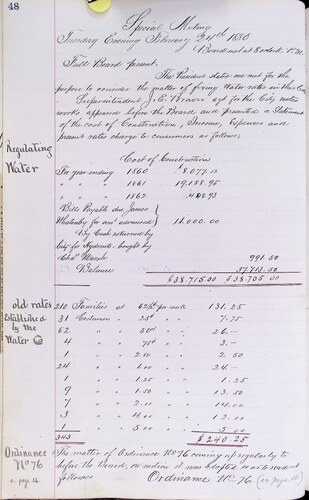 48
Special Meeting
Tuesday Evening February 24th 1880
Board met at 8 oclock P.M.
Full Board present.
The President states we met for the
purpose to consider the matter of fixing Water rates in this City
Superintendent J. E. Brown agt for the City water
works appeared before the Board and presented a Statement
of the cost of Construction, Income, Expenses and
present rates charge to consumers as follows;
Regulating
Water
Cost of Construction
For year ending 1860 8.077.12
" " " 1861 19.188.95
" " " 1862
Bills Payable due James
for am't advanced 11.000.00
By Cash returned by
City for Hydrants, bought by
Chas. 991.50
Balance 37.713.50
$38.715.00 $38.705.00
old rates
Established
by the
Water Co
210 Families at 62½ per month 131.25
31 " " 25 " " 7.75
52 " " 50 " " 26.—
4 " " 75 " " 3.—
1 " " 2.50 " " 2.50
24 " " 1.00 " " 24.—
1 " " 1.25 " " 1.25
9 " " 1.50 " " 13.50
7 " " 2.00 " " 14.00
3 " " 4.00 " " 12.00
1 " " 5.00 " " 5.00
343 $240.25
Ordinance
No 76
on page 46.
The matter of Ordinance No 76 coming up regularly to
before the Board, on motion it was adopted as it reads as
follows Ordinance No 76 (on page 46)